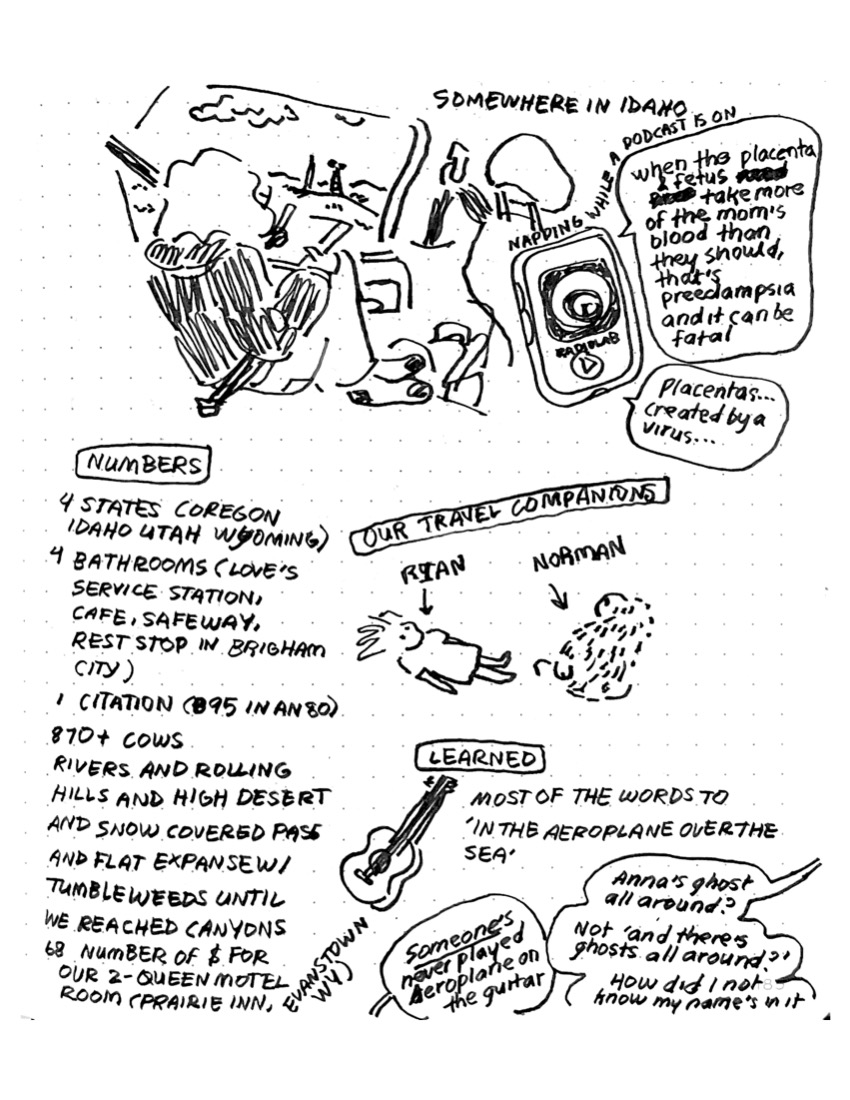 SOMEWHERE IN IDAHO
NAPPING WHILE A PODCAST IS ON
when the placenta
& fetus
take more
of the mom's
blood than
they should,
that's
preeclampsia
and it can be
fatal
RADIOLAB
Placentas...
created by a
virus...
NUMBERS
4 STATES (OREGON
IDAHO UTAH WYOMING)
4 BATHROOMS (LOVE'S
SERVICE STATION,
CAFE, SAFEWAY,
REST STOP IN BRIGHAM
CITY)
1 CITATION (95 IN AN 80)
870+ COWS
RIVERS AND ROLLING
HILLS AND HIGH DESERT
AND SNOW COVERED PASS
AND FLAT EXPANSE W/
TUMBLEWEEDS UNTIL
WE REACHED CANYONS
68 NUMBER OF $ FOR
OUR 2-QUEEN MOTEL
ROOM (PRAIRIE INN,
EVANSTOWN
WY)
OUR TRAVEL COMPANIONS
RYAN
NORMAN
LEARNED
MOST OF THE WORDS TO
'IN THE AEROPLANE OVER THE
SEA'
Someone's
never played
Aeroplane on
the guitar
Anna's ghost
all around?
Not 'and there's
ghosts all around?'
How did I not
know my name's in it
185